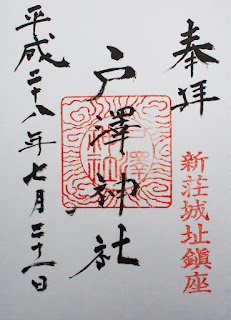 奉拝
新荘城址鎮座
戸澤神社
平成二十八年七月二十一日